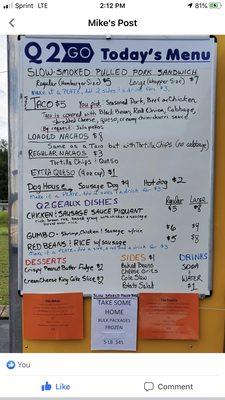 1 Mile
2:12 PM
81%
Mike's Post
Q2GO Today's Menu
SLOW-SMOKED PULLED PORK SANDWICH
Regular (Hamburger Size) $5 Large (Whopper Size) $7
Make it a PLATE, Add 2 sides & drink for $3
TACO $5 You pick Seasoned Pork, Beef or Chicken,
Taco is covered with Black Beans, Red Onion, Cabbage,
shredded Cheese, queso, creamy chimichurri sauce
By request: Jalapeños
LOADED NACHOS
Same as a Taco but with Tortilla Chips (no cabbage)
REGULAR NACHOS $3
Tortilla Chips & Queso
EXTRA QUESO (4oz cup) $1
Dog House Sausage Dog $4 Hot dog $2
Make it a PLATE, Add 2 sides & drink for $3
Q2 GEAUX DISHES Regular Large
CHICKEN & SAUSAGE SAUCE PIQUANT $5 $8
GUMBO - Shrimp, Chicken & Sausage w/rice $6 $9
RED BEANS & RICE w/ sausage $5 $8
DESSERTS
Crispy Peanut Butter Fudge $2
Cream Cheese King Cake Slice $2
SIDES $1
Baked Beans
Cheese Grits
Cole Slaw
Potato Salad
DRINKS
SODA
or
WATER
$1
SLOW SMOKED PULLED PORK
TAKE SOME
HOME
BULK PACKAGES
FROZEN
5 LB $45
You
Like
Comment